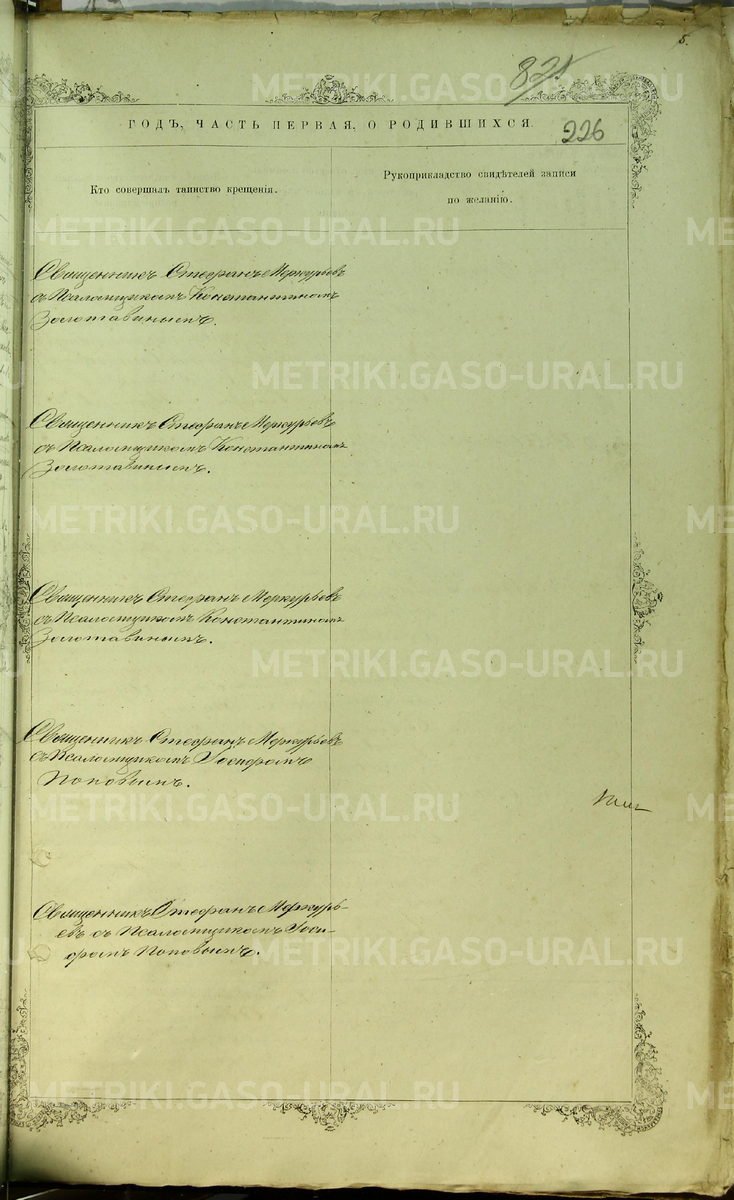 5.
825
ГОДЪ, ЧАСТЬ ПЕРВАЯ, О РОДИВШИХСЯ.
226
Кто совершалъ таинство крещенія.
Рукоприкладство свидѣтелей записи
по желанію.
Священникъ Стефанъ Меркурьевъ
съ Псаломщикомъ Константиномъ
Золотавинымъ.
Священникъ Стефанъ Меркурьевъ
съ Псаломщикомъ Константиномъ
Золотавинымъ.
Священникъ Стефанъ Меркурьевъ
съ Псаломщикомъ Константиномъ
Золотавинымъ.
Священникъ Стефанъ Меркурьевъ
съ Псаломщикомъ
Поповымъ.
Священникъ Стефанъ Меркурь-
евъ съ Псаломщикомъ
Поповымъ.
METRIKI.GASO-URAL.RU